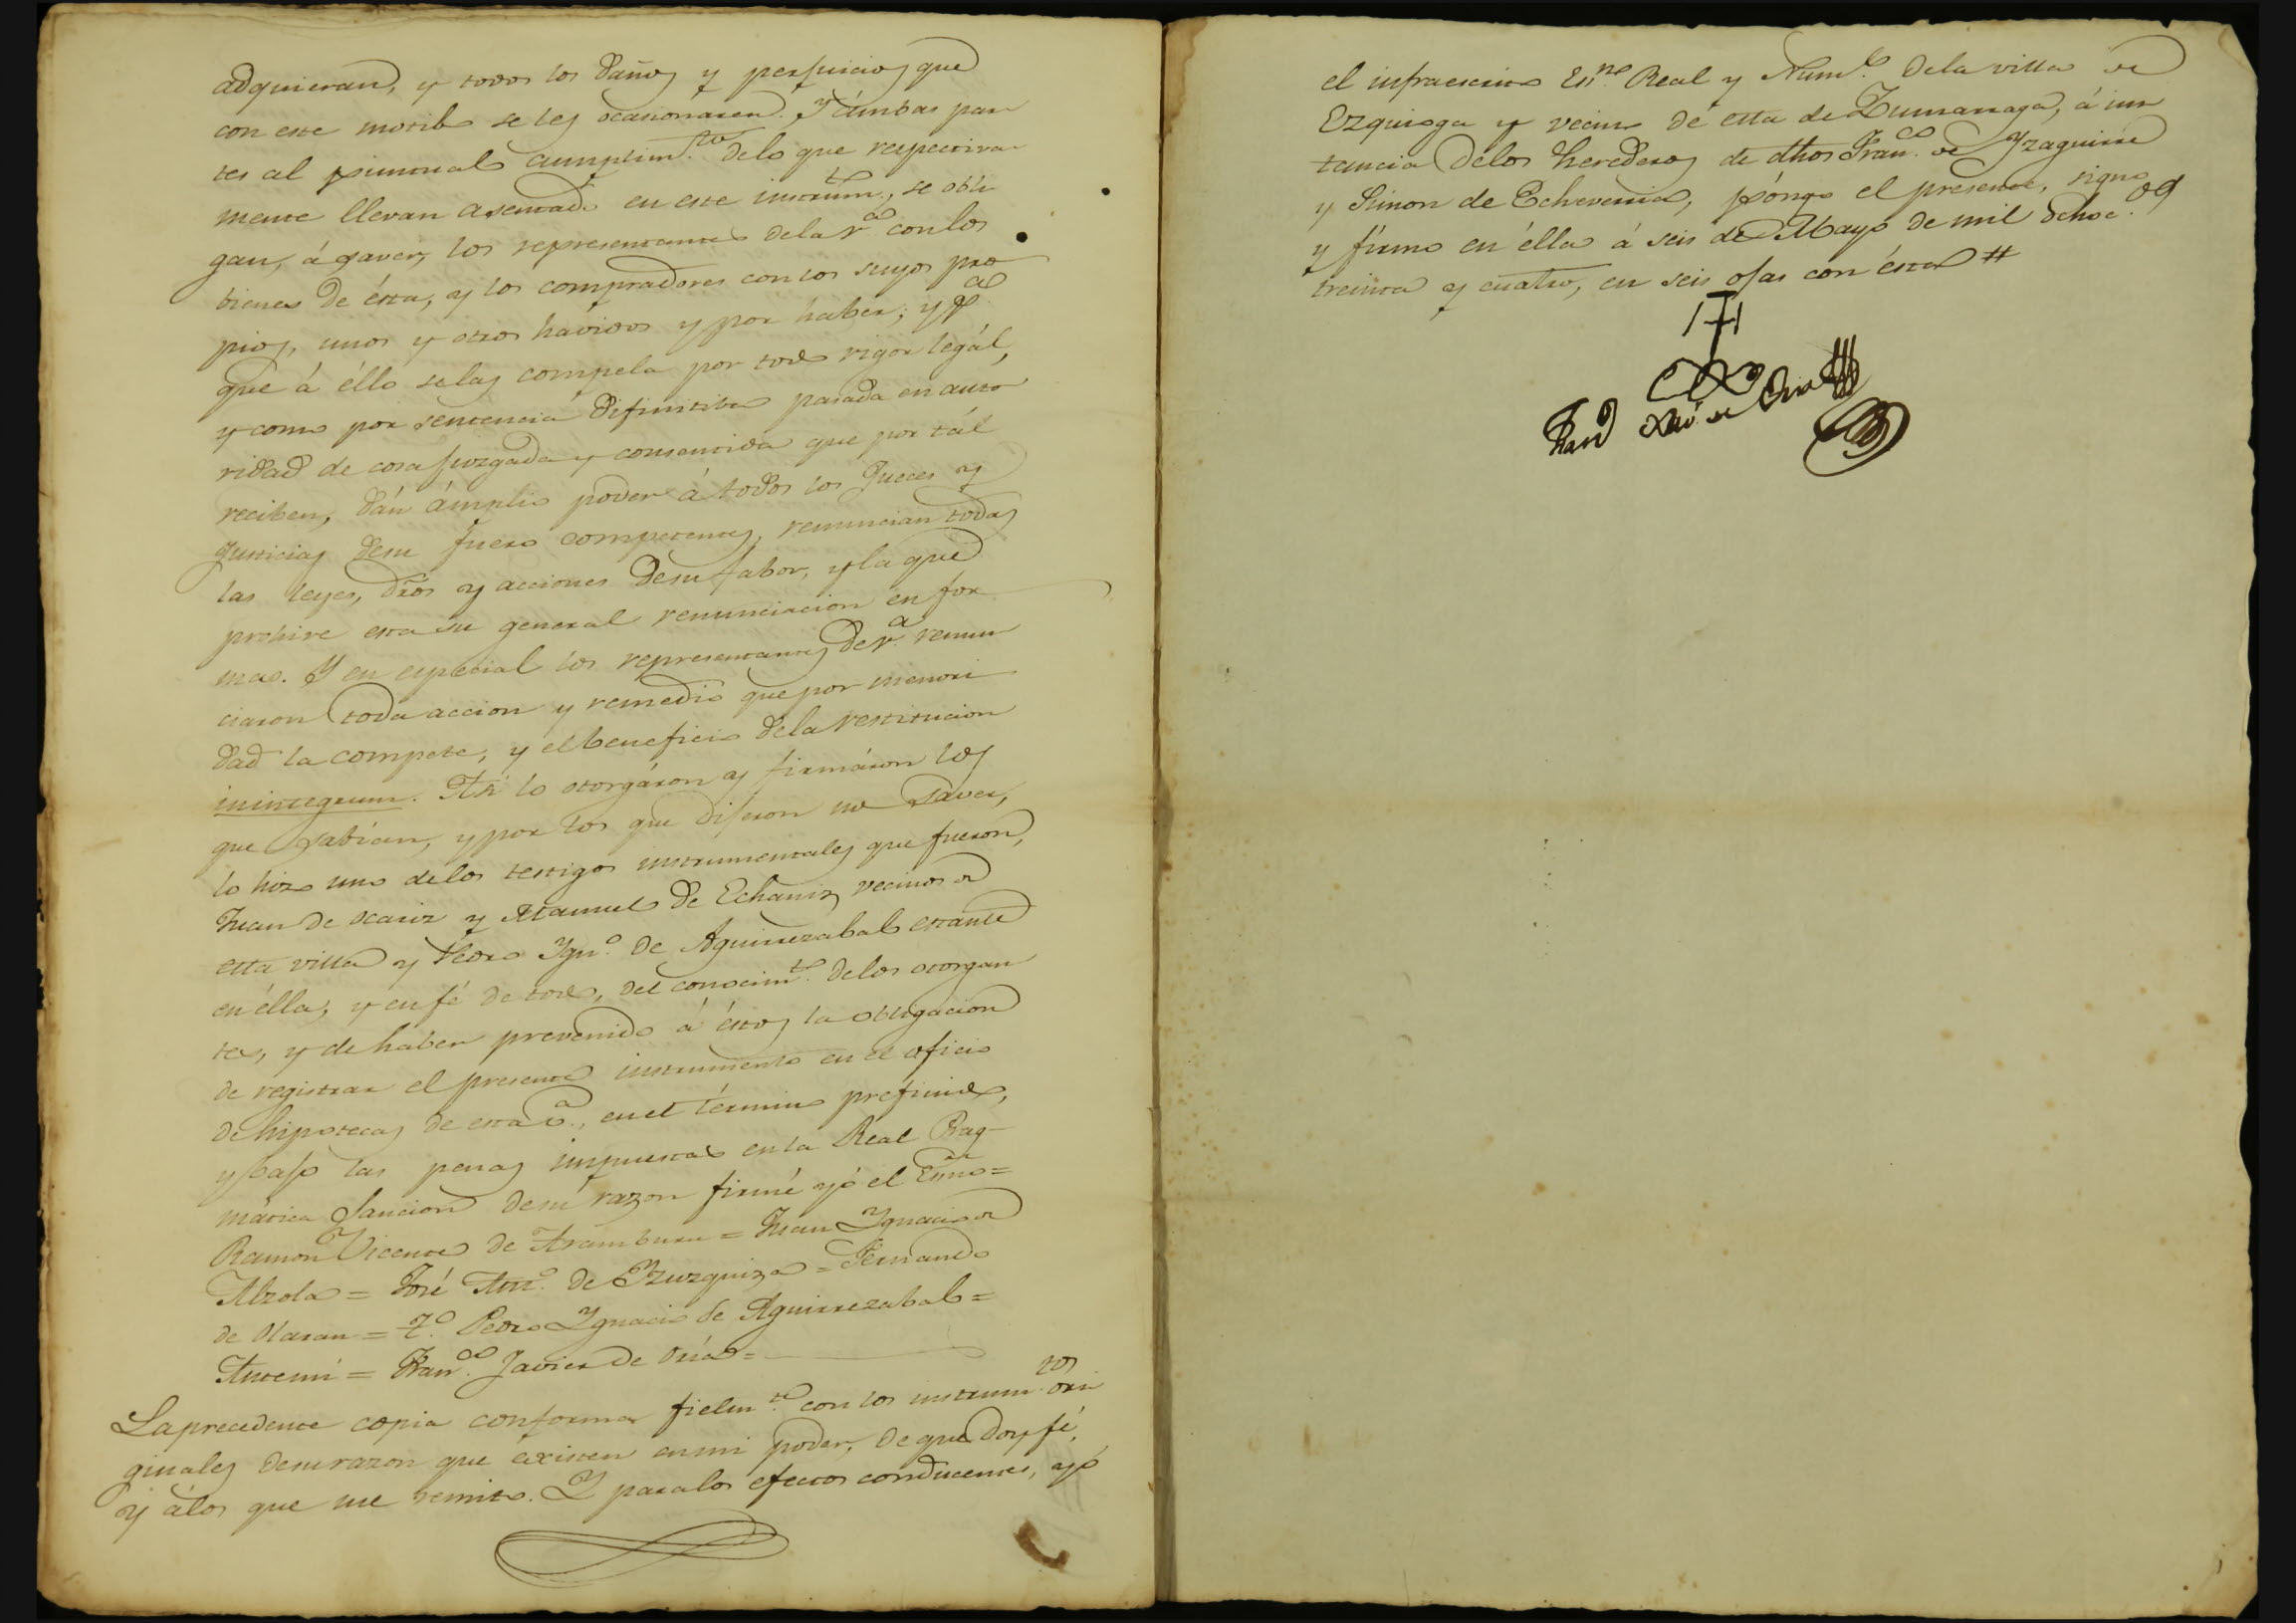 adquieran, y todos los daños y perjuicios que
con este motibo se les ocasionaren. Y ámbas par
tes al puntual cumplim.to delo que respectiva
mente llevan asentado en este instrum.to, se obli
gan, á saver, los representantes dela V.a con los
bienes de ésta, y los compradores con los suyos pro
pios, unos y otros havidos y por haber; y p.a
que á éllo selas compela por todo rigor legál,
y como por sentencia difinitiba pasada en auto
ridad de cosa juzgada y consentida que por tál
reciben, dán ámplio poder á todos los Jueces y
Justicias desu fuero competentes, renuncian todas
las leyes, dros y acciones desu fabor, y la que
prohive esta su general renunciacion en for
ma. Y en especial los representantes de V.a renun
ciaron toda accion y remedio que por menori
dad la compete, y el beneficio dela restitucion
inintegrum. Asi lo otorgáron y firmáron los
que sabian, y por los que dijeron no saver,
lo hizo uno delos testigos instrumentales que fueron,
Juan de Ocariz y Manuel de Echaniz vecinos de
esta villa y Pedro Ygn.o de Aguirrezabal estante
en élla, y en fé de todo, del conocim.to delos otorgan
tes, y de haber prevenido á éstos la obligacion
de registrar el presente instrumento en el oficio
de hipotecas de esta v.a, en el término prefinido,
y bajo las penas impuestas en la Real Prag-
mática Sancion desu razon firmé yó el Esno=
Ramon Vicente de Aramburu = Juan Ygnacio de
Alzola = José Ant.o de Yzuzquiza = Fernando
de Olaran = T.o Pedro Ygnacio de Aguirrezabal =
Antemi = Fran.co Javier de Oria =
La precedente copia conforma fielm.te con los instrum.tos ori
ginales desu razon que éxisten en mi poder, de que doy fé,
y álos que me remito. Y para los efectos conducentes, yó
el infraescrito Es.no Real y Num.l dela villa de
Ezquioga y vecino dé esta de Zumarraga, á ins
tancia delos herederos de dhos Fran.co de Yzaguirre
y Simon de Echeverria, póngo el presente, signo
y firmo en élla á seis de Mayo de mil ochoc.os
treinta y cuatro, en seis ojas con ésta #
Fran.co Xav.r de Oria